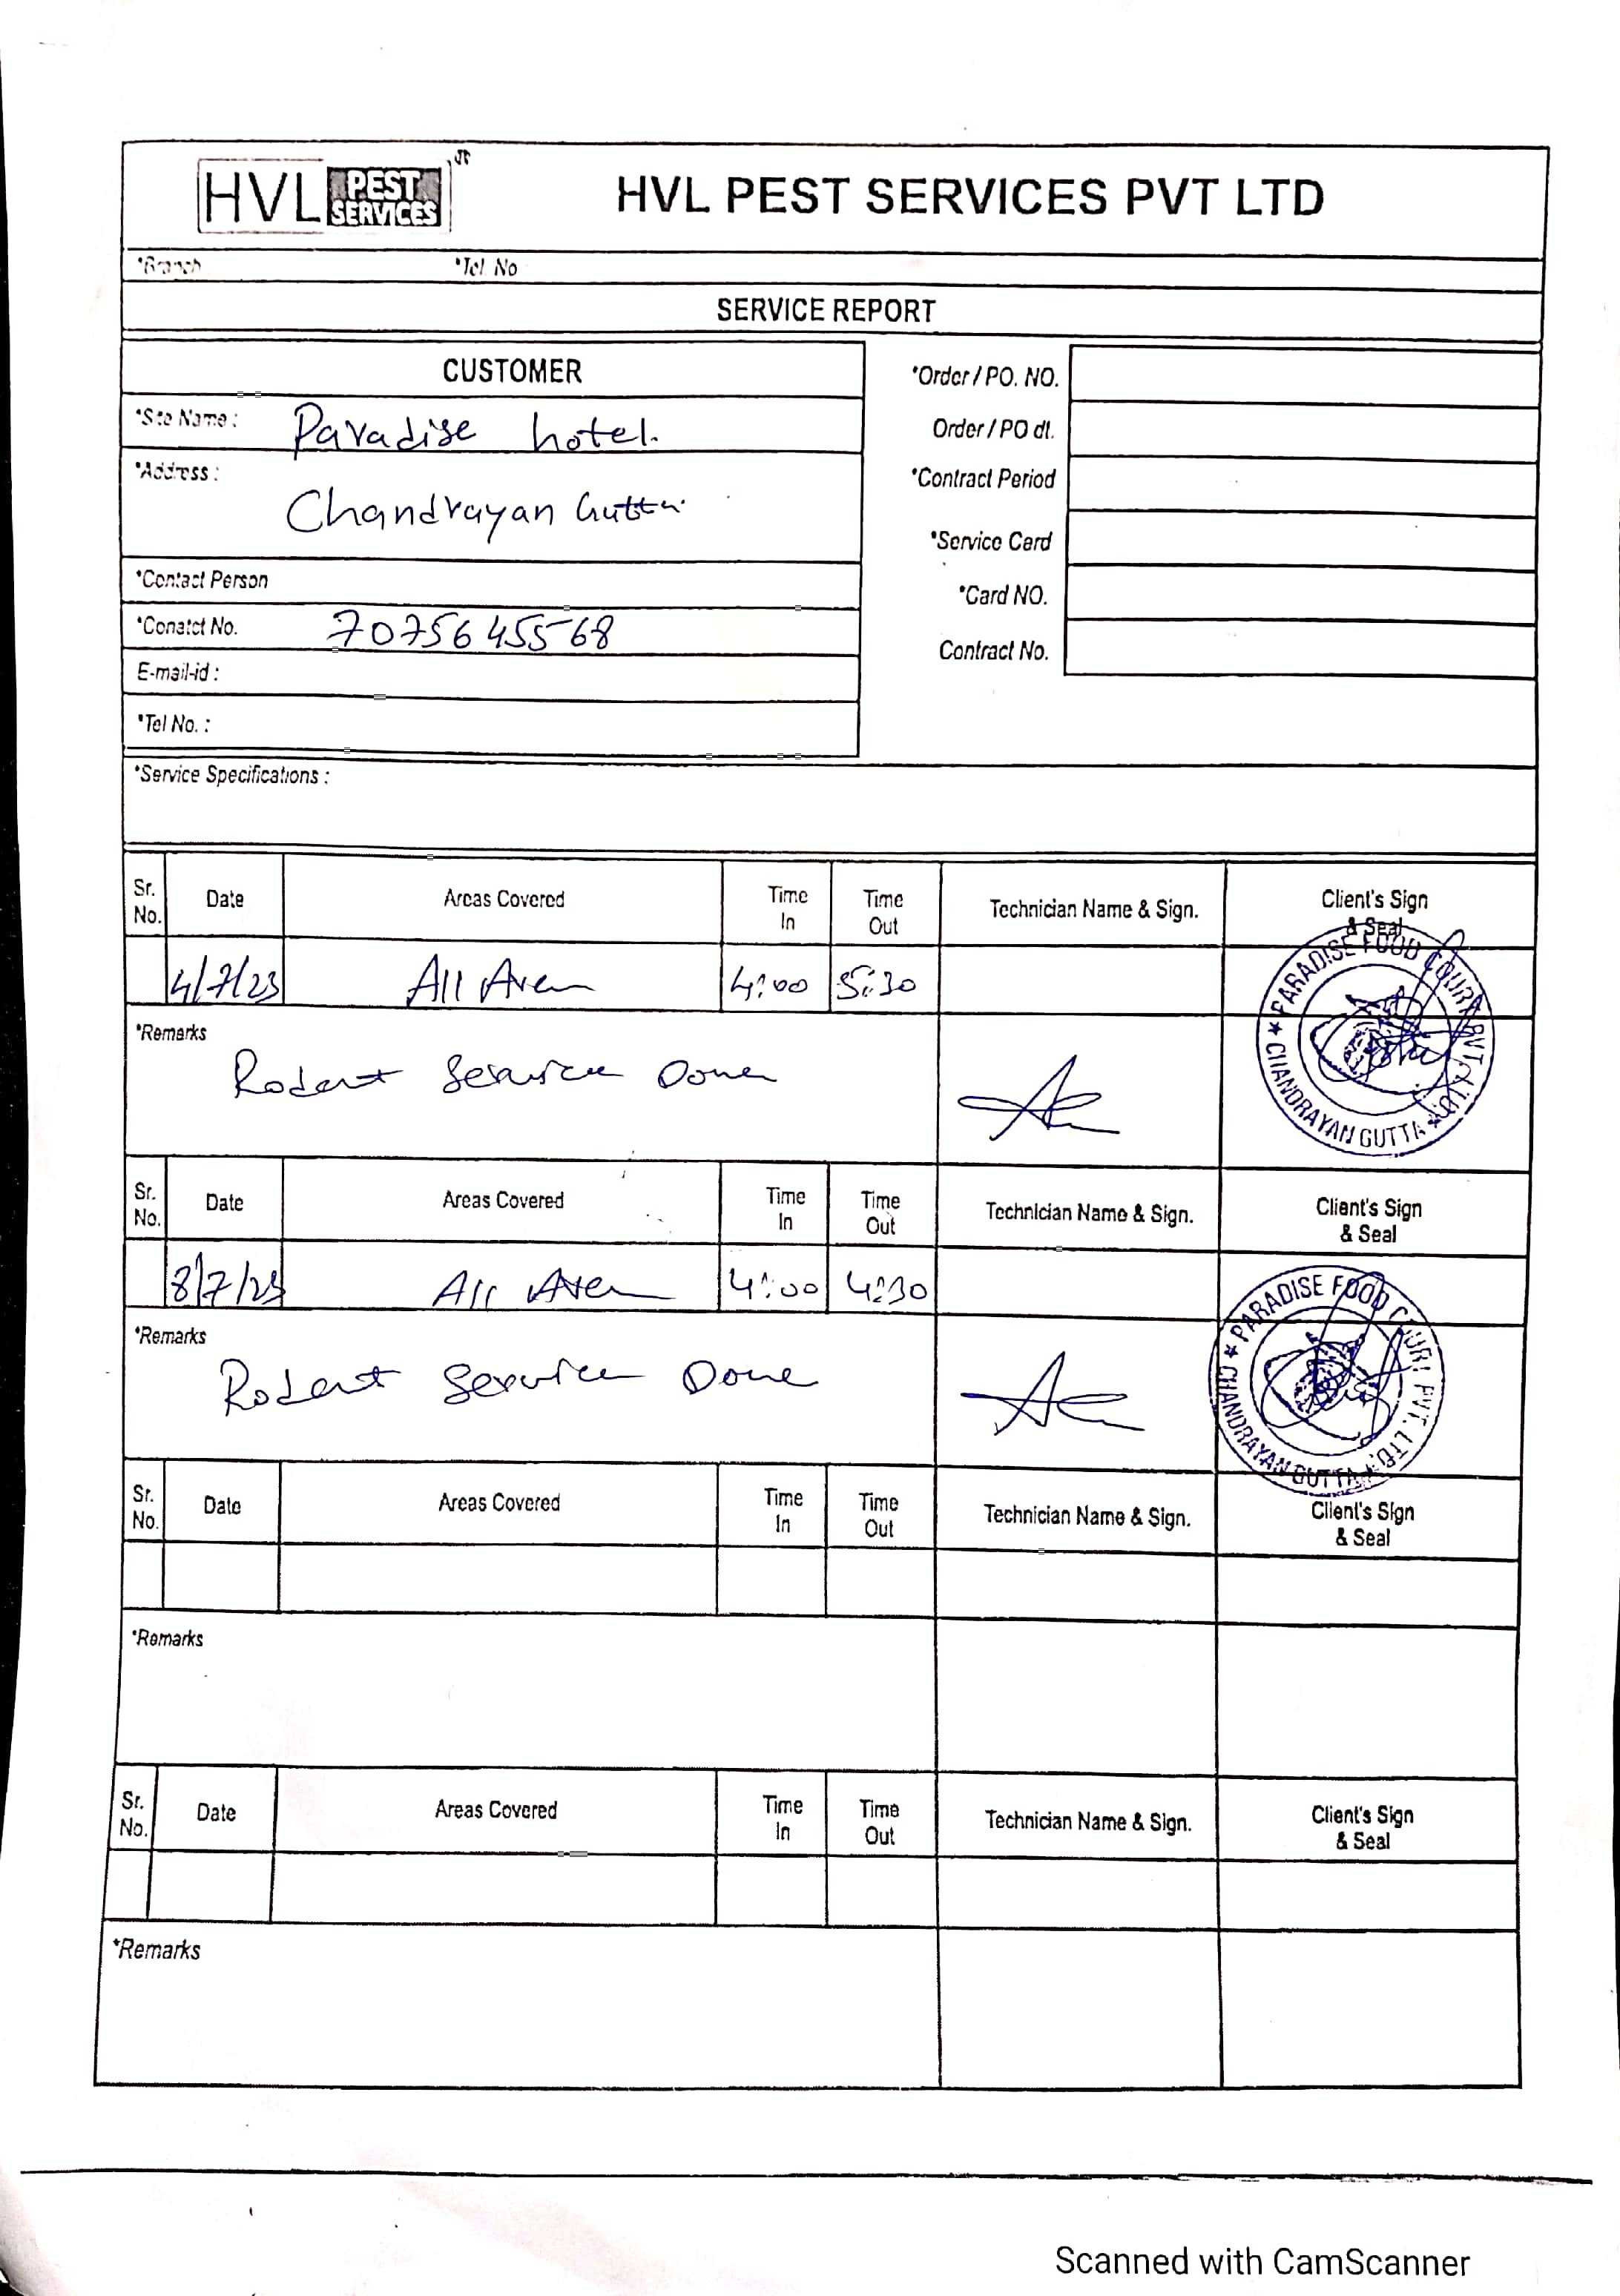 HVL PEST SERVICES
HVL PEST SERVICES PVT LTD
*Branch *Tel. No
SERVICE REPORT
CUSTOMER
*Site Name : Paradise hotel.
*Address :
Chandrayan Gutta
*Contact Person
*Conatct No. 7075645568
E-mail-id :
*Tel No. :
*Order / PO. NO.
Order / PO dt.
*Contract Period
*Service Card
*Card NO.
Contract No.
*Service Specifications :
Sr. No. Date Areas Covered Time In Time Out Technician Name & Sign. Client's Sign & Seal
4/7/23 All Area 4:00 5:30
*Remarks
Rodent Service Done
★ PARADISE FOOD COURT PVT. LTD. ★ CHANDRAYAN GUTTA
Sr. No. Date Areas Covered Time In Time Out Technician Name & Sign. Client's Sign & Seal
8/7/23 All Area 4:00 4:30
*Remarks
Rodent Service Done
★ PARADISE FOOD COURT PVT. LTD. ★ CHANDRAYAN GUTTA
Sr. No. Date Areas Covered Time In Time Out Technician Name & Sign. Client's Sign & Seal
*Remarks
Sr. No. Date Areas Covered Time In Time Out Technician Name & Sign. Client's Sign & Seal
*Remarks
Scanned with CamScanner